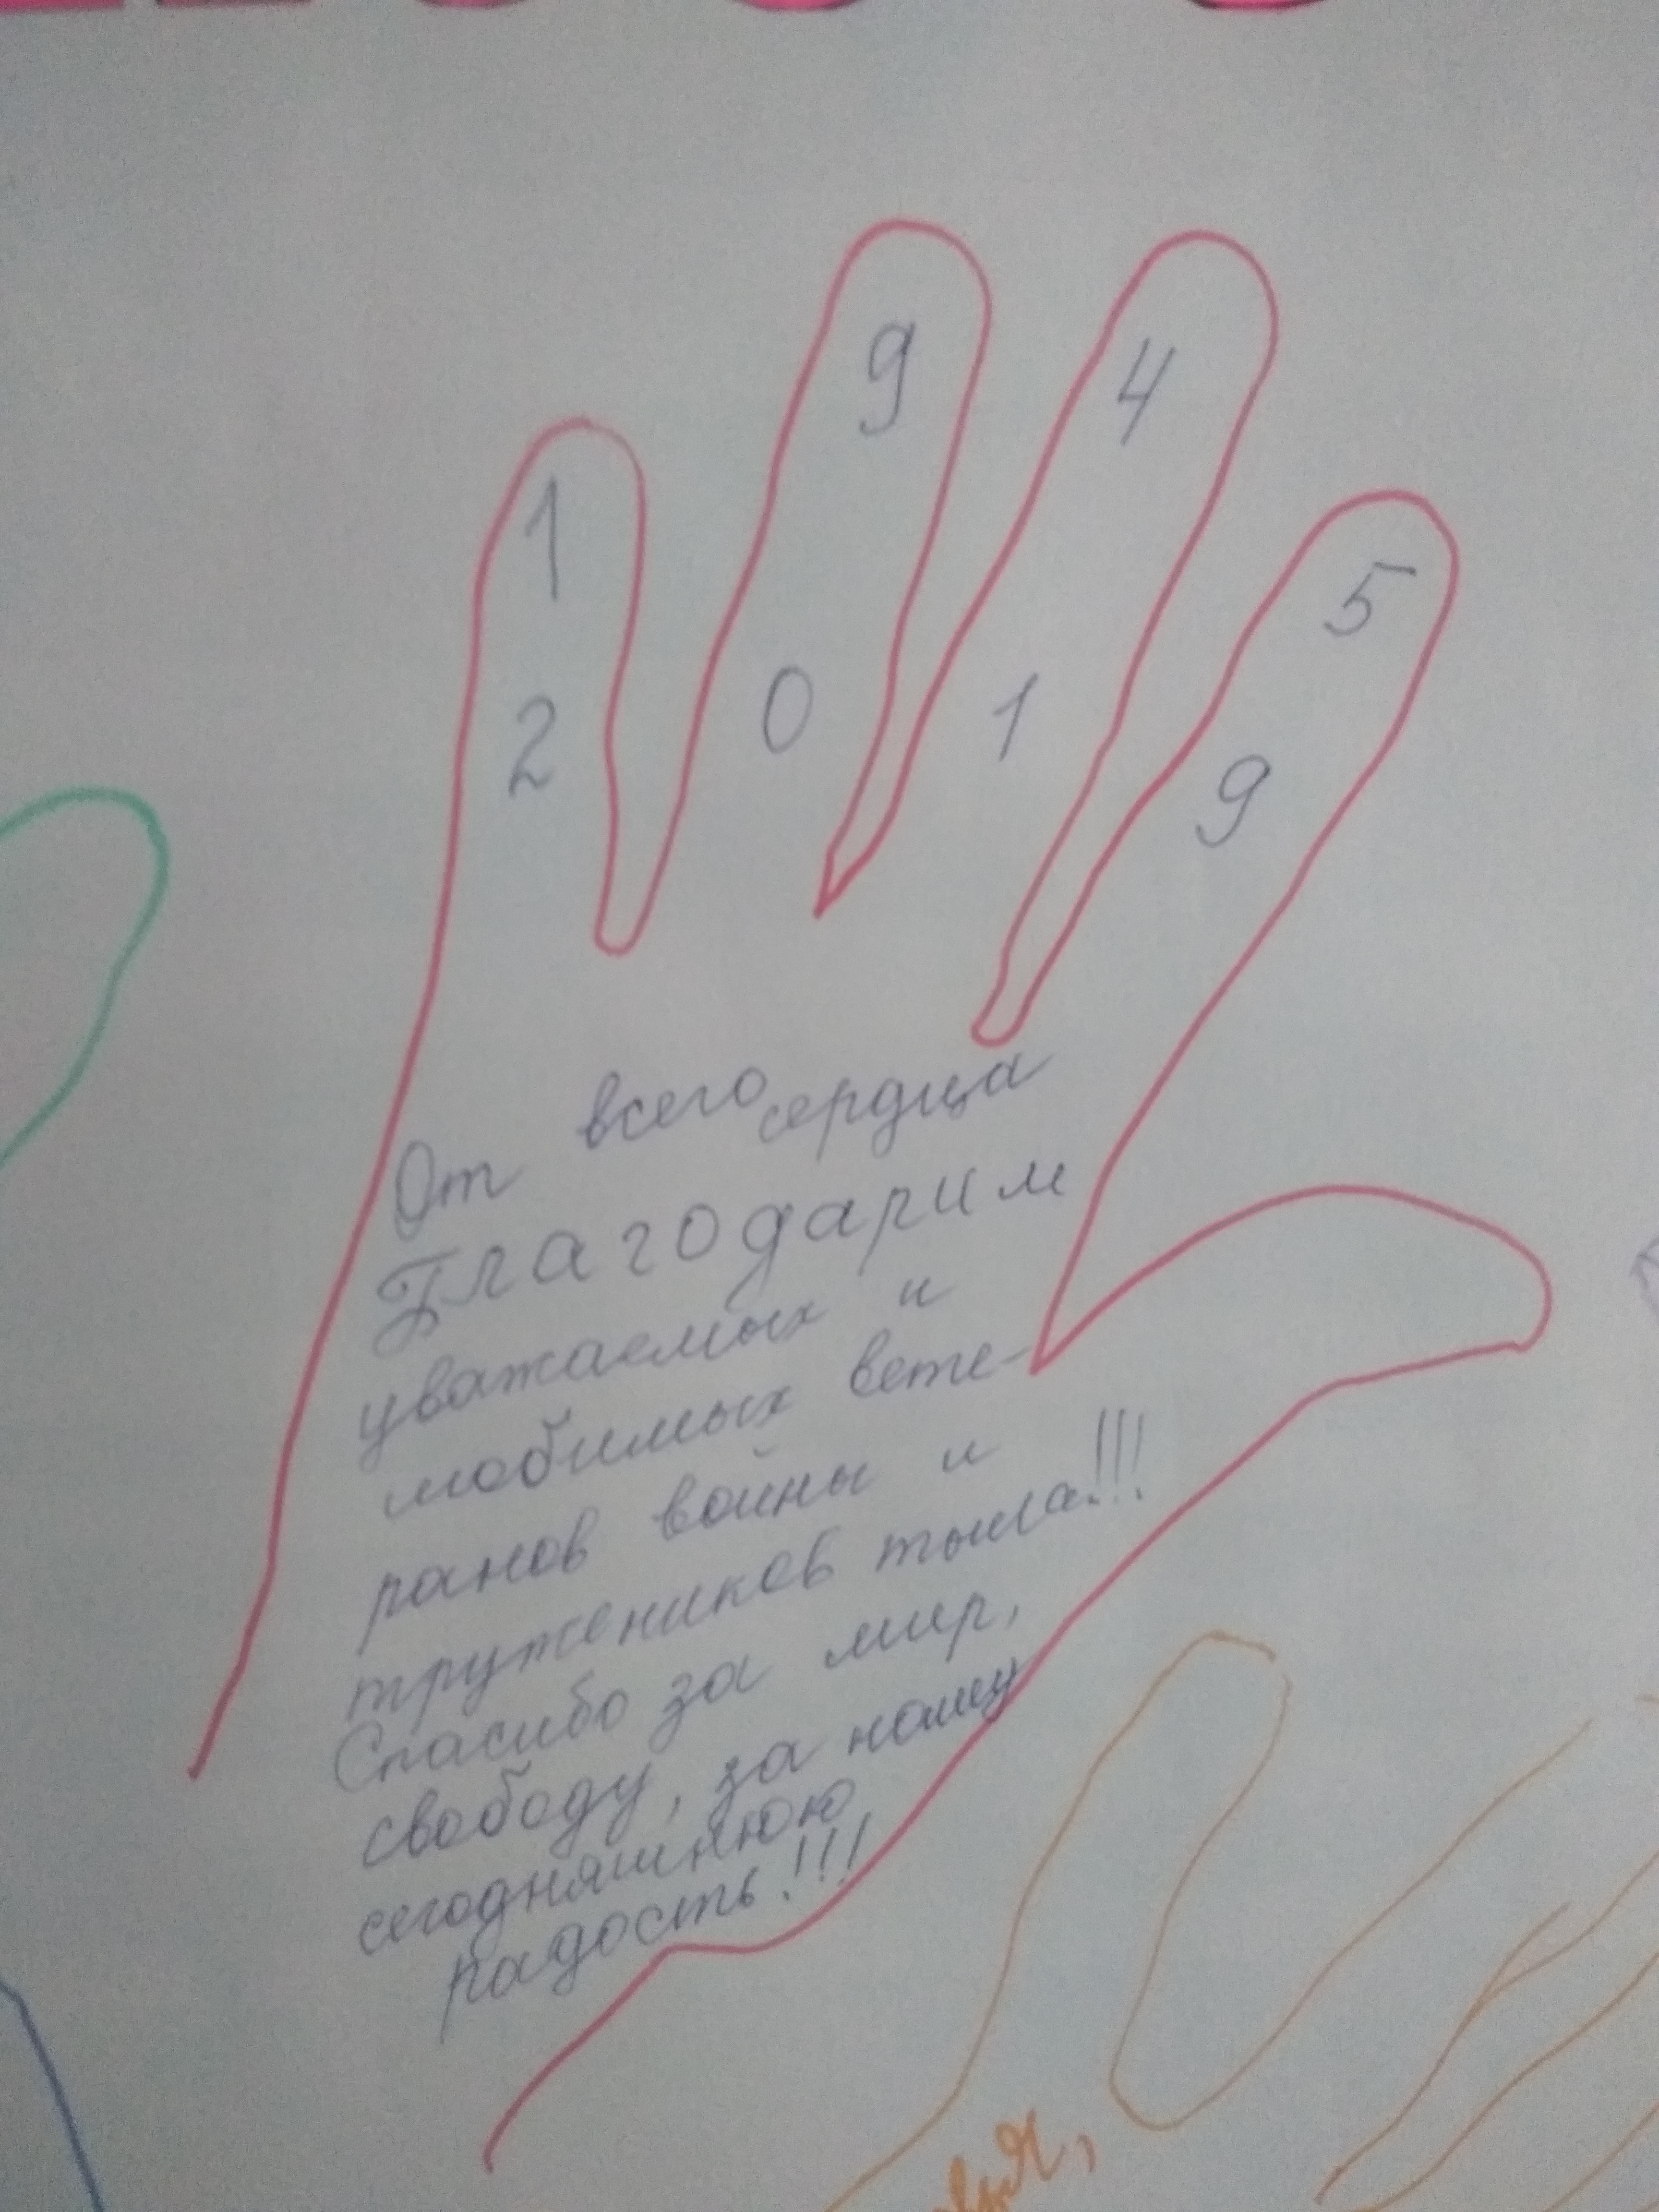 1 9 4 5
2 0 1 9
От всего сердца
Благодарим
уважаемых и
любимых вете-
ранов войны и
тружеников тыла!!!
Спасибо за мир,
свободу, за нашу
сегодняшнюю
радость!!!